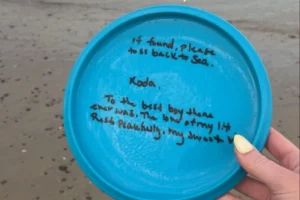 if found, please
toss back to Sea.
Koda.
To the best boy there
ever was. The love of my life
Rest peacefully, my